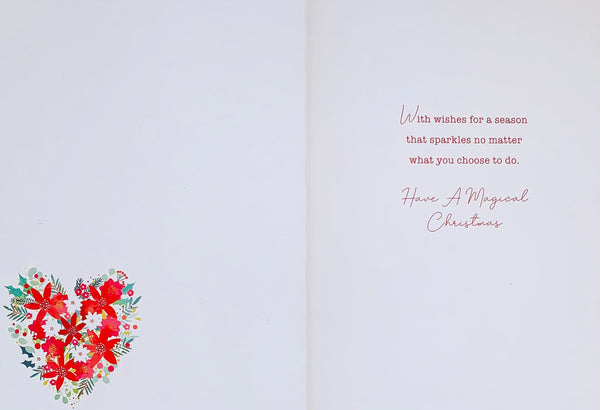 With wishes for a season
that sparkles no matter
what you choose to do.
Have A Magical
Christmas